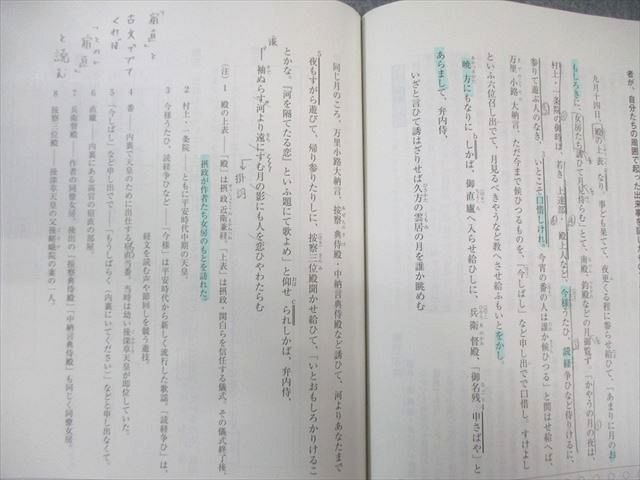 者が、自分たちの周囲で起った出来事を
九月十四日、「殿の上表」なり。事ども果てて、夜更くる程に参らせ給ひて、「あまりに月のお
もしろきに、女房たち誘ひて月見侍らむ」とて、南殿、釣殿などの月御覧ず。「かやうの月の夜は、
村上・一条院の御時は、若き上達部・殿上人など、今様うたひ、読経争ひなど侍りけるに、
参りて遊ぶ人のなき、いとこそ口惜しけれ。今宵の番の人は誰か候ひつる」と問はせ給へば、
万里小路大納言、ただ今まで候ひつるものを、「今しばし」など申し出でで口惜し。すけよし
といふ六位召し出でて、月見るべきやうなど教へさせ給ふもいとをかし。
暁方にもなりにしかば、御直廬へ入らせ給ひしに、兵衛督殿、「御名残、申さばや」と
あらまして、弁内侍、
いざと言ひて誘はざりせば久方の雲居の月を誰か眺めむ
同じ月のころ、万里小路大納言、按察典侍殿・中納言典侍殿など誘ひて、河よりあなたまで
5 夜もすがら遊びて、帰り参りたりしに、按察三位殿聞かせ給ひて、「いとおもしろかりけるこ
とかな。『河を隔てたる恋』といふ題にて歌よめ」と仰せられしかば、弁内侍、
袖ぬらす河より遠にすむ月の影にも人を恋ひやわたらむ
掛詞
(注) 1 殿の上表――「殿」は摂政近衛兼経。「上表」は摂政・関白らを信任する儀式。その儀式終了後、
摂政が作者たち女房のもとを訪れた。
2 村上・一条院――ともに平安時代中期の天皇。
3 今様うたひ、読経争ひなど――「今様」は平安時代から新しく流行した歌謡。「読経争ひ」は、
経文を読む声や節回しを競う遊技。
4 番――内裏で天皇のために出仕する宿直当番。当時は幼い後深草天皇が即位していた。
5 「今しばし」など申し出でで――「もうしばらく(内裏にいてください)」などと申し出なくて。
6 直廬――内裏にある高官の宿直の部屋。
7 兵衛督殿――作者の同僚女房。後出の「按察典侍殿」「中納言典侍殿」も同じく同僚女房。
8 按察三位殿――後深草天皇の父後嵯峨院の妻の一人。
「宿直」と
古文でてて
くれば
「とのい
宿直」
と読む